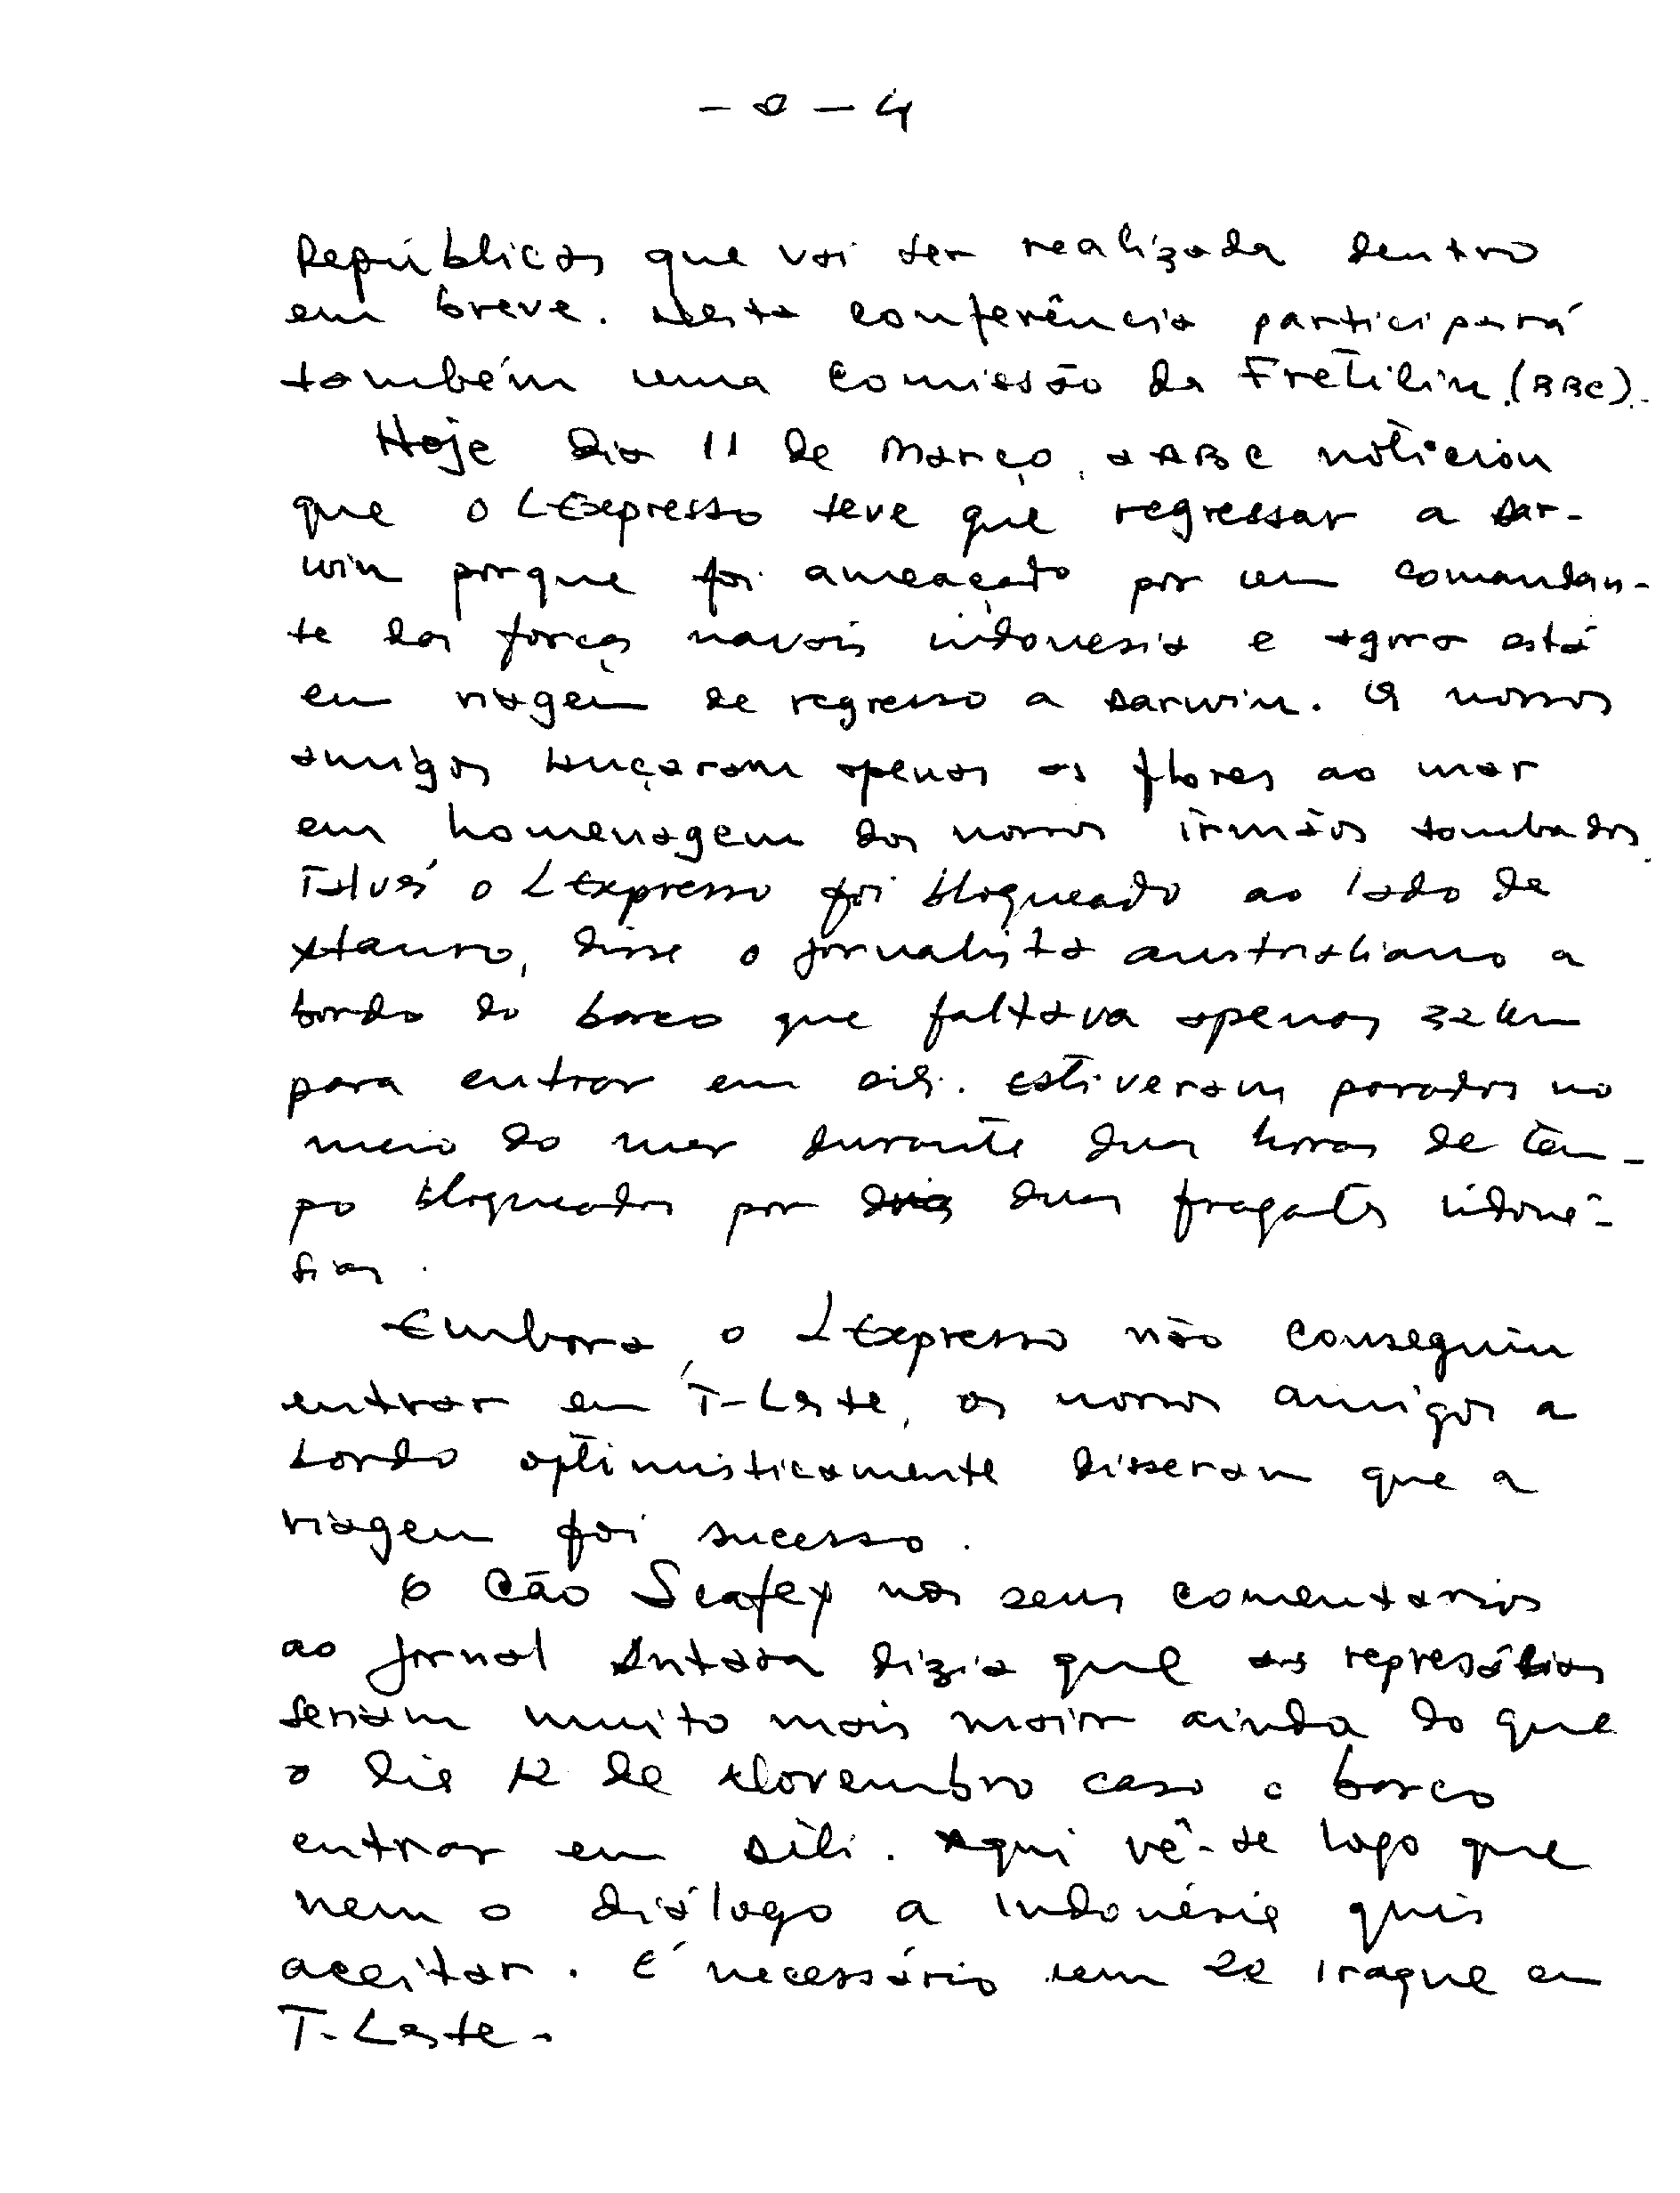 - 0 - 4
Repúblicas que vai ser realizada dentro
em breve. Nesta conferência participará
também uma comissão da Fretilin. (BBC).
Hoje dia 11 de Março, a ABC noticiou
que o LExpresso teve que regressar a Dar-
win porque foi ameaçado por um comandan-
te das forças navais indonesia e agora está
em viagem de regresso a Darwin. Os nossos
amigos lançaram apenas as flores ao mar
em homenagem dos nossos irmãos tombados.
Talvés o LExpresso foi bloqueado ao lado de
Ataúro, disse o jornalista australiano a
bordo do barco que faltava apenas 32 km
para entrar em Dili. Estiveram parados no
meio do mar durante duas horas de tem-
po bloqueados por duas fragatas indoné-
sias.
Embora, o LExpresso não conseguiu
entrar em T-Leste, os nossos amigos a
bordo optimisticamente disseram que a
viagem foi sucesso.
O Cão Seafey nos seus comentarios
ao jornal Antara dizia que as represálias
seriam muito mais maior ainda do que
o dia 12 de Novembro caso o barco
entrar em Dili. Aqui vê-se logo que
nem o diálogo a Indonésia quis
aceitar. É necessário um 2º Iraque em
T-Leste.